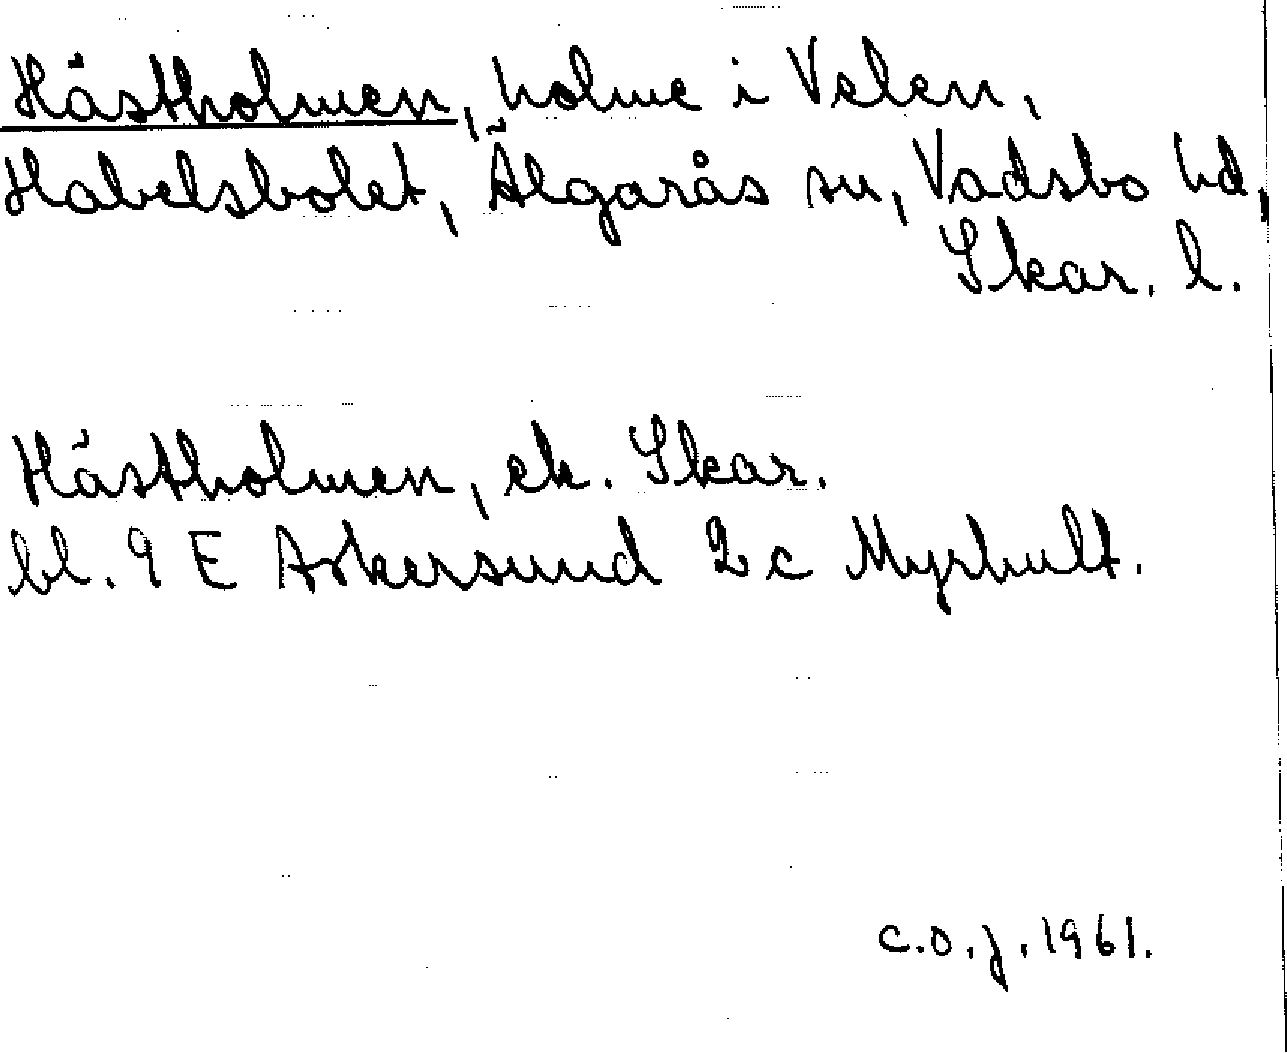 Hästholmen, holme i Velen,
Habelsbolet, Älgarås sn, Vadsbo hd,
Skar. l.
Hästholmen, ek. Skar.
bl. 9 E Askersund 2 c Myrhult.
c.o.j. 1961.